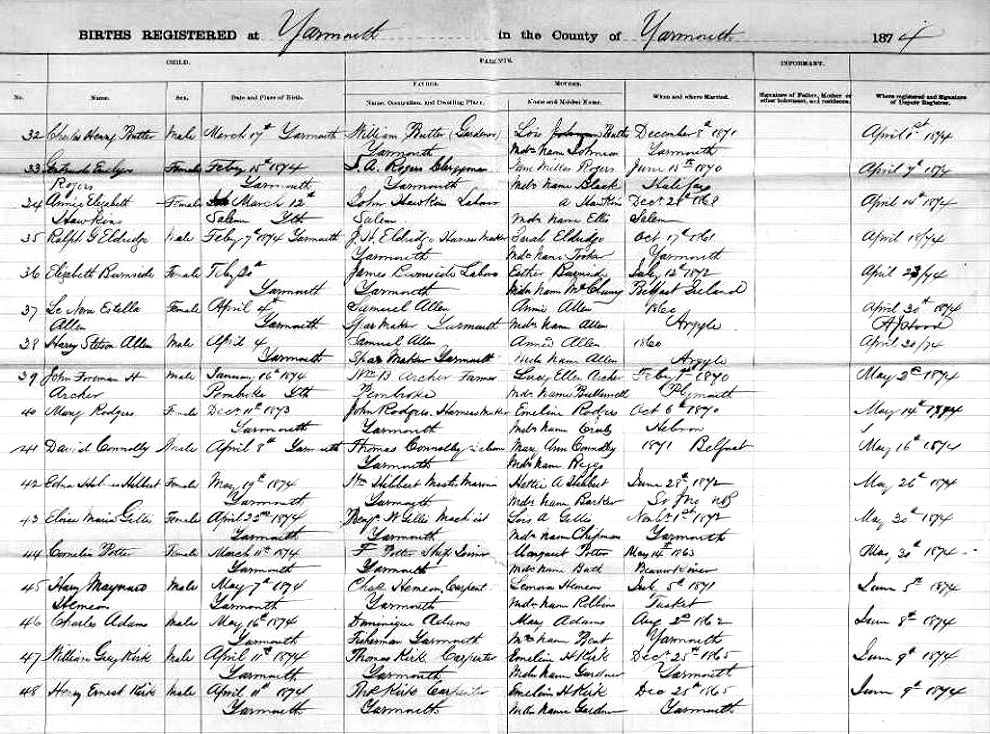 BIRTHS REGISTERED at Yarmouth in the County of Yarmouth 1874
CHILD. PARENTS. INFORMANT.
FATHER. MOTHER.
No. Name. Sex. Date and Place of Birth. Name, Occupation, and Dwelling Place. Name and Maiden Name. When and where Married. Signature of Father, Mother or other Informant, and residence. When registered and Signature of Deputy Registrar.
32 Charles Henry Butler Male March 17th Yarmouth William Butler (Gardener) Lois Johnson Butler December 8th 1871 April 1st 1874
Yarmouth Mdn Name Johnson Yarmouth
33 Gertrude Female Feby 15th 1874 T. A. Rogers Clergyman Jane Miller Rogers June 15th 1870 April 9th 1874
Rogers Yarmouth Yarmouth Mdn Name Black Halifax
34 Annie Elizabeth Female March 12th John Hawkins Labor A Hawkins Decr 26th 1868 April 14th 1874
Hawkins Salem Yth Salem Mdn Name Ellis Salem
35 Ralph G Eldridge Male Feby 7th 1874 Yarmouth J. H. Eldridge Harness Maker Sarah Eldridge Oct 17th 1861 April 18/74
Yarmouth Mdn Name Tooker Yarmouth
36 Elizabeth Burnside Female Feby 20th James Burnside Labor Esther Burnside July 12th 1872 April 23/74
Yarmouth Yarmouth Mdn Name McClung Belfast Ireland
37 Le Nora Estella Female April 4th Samuel Allen Annie Allen 1860 April 30th 1874
Allen Yarmouth Spar Maker Yarmouth Mdn Name Allen Argyle
38 Harry Stetson Allen Male April 4 Samuel Allen Annie Allen 1860 April 30/74
Yarmouth Spar Maker Yarmouth Mdn Name Allen Argyle
39 John Foreman H Male January 16th 1874 Wm B Archer Farmer Lucy Ellen Archer Feby 1870 May 2nd 1874
Archer Pembroke Yth Pembroke Mdn Name Plymouth
40 Mary Rodgers Female Decr 11th 1873 John Rodgers Harness Maker Emeline Rodgers Oct 6th 1870 May 14th 1874
Yarmouth Yarmouth Mdn Name Crosby Hebron
41 David Connolly Male April 8th Yarmouth Thomas Connolly Mary Ann Connolly 1871 Belfast May 16th 1874
Yarmouth Mdn Name
42 Edna Hibbert Female May 19th 1874 Wm Hibbert Mastr Mariner Hattie A Hibbert June 28th 1872 May 26th 1874
Yarmouth Yarmouth Mdn Name Barker St Jno NB
43 Eloise Maria Gellie Female April 22nd 1874 Benj. W Gellie Machinist Lois A Gellie Novbr 1st 1872 May 30th 1874
Yarmouth Yarmouth Mdn Name Chipman Yarmouth
44 Cornelia Potter Female March 11th 1874 F Potter Ship Joiner Margaret Potter May 14th 1863 May 30th 1874
Yarmouth Yarmouth Mdn Name Bath Beaver River
45 Harry Maynard Male May 7th 1874 Chas Hemeon Carpent Lenora Hemeon July 5th 1871 June 5th 1874
Hemeon Yarmouth Yarmouth Mdn Name Robbins Tusket
46 Charles Adams Male May 16th 1874 Dominique Adams Mary Adams Aug 2nd 1862 June 8th 1874
Yarmouth Fisherman Yarmouth Mdn Name Bent Yarmouth
47 William Guy Kirk Male April 11th 1874 Thomas Kirk Carpenter Emeline H Kirk Decr 25th 1865 June 9th 1874
Yarmouth Yarmouth Mdn Name Gardner Yarmouth
48 Henry Ernest Kirk Male April 11th 1874 Thos Kirk Carpenter Emeline H Kirk Dec 25th 1865 June 9th 1874
Yarmouth Yarmouth Mdn Name Gardner Yarmouth